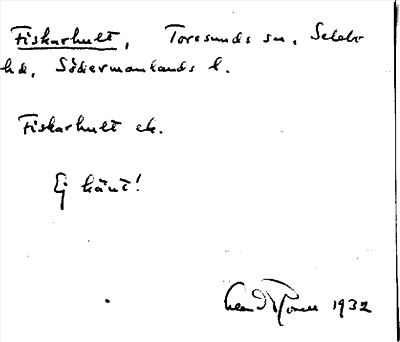 Fiskarhult, Toresunds sn, Selebo
hd, Södermanlands l.
Fiskarhult ek.
Ej känt!
1932